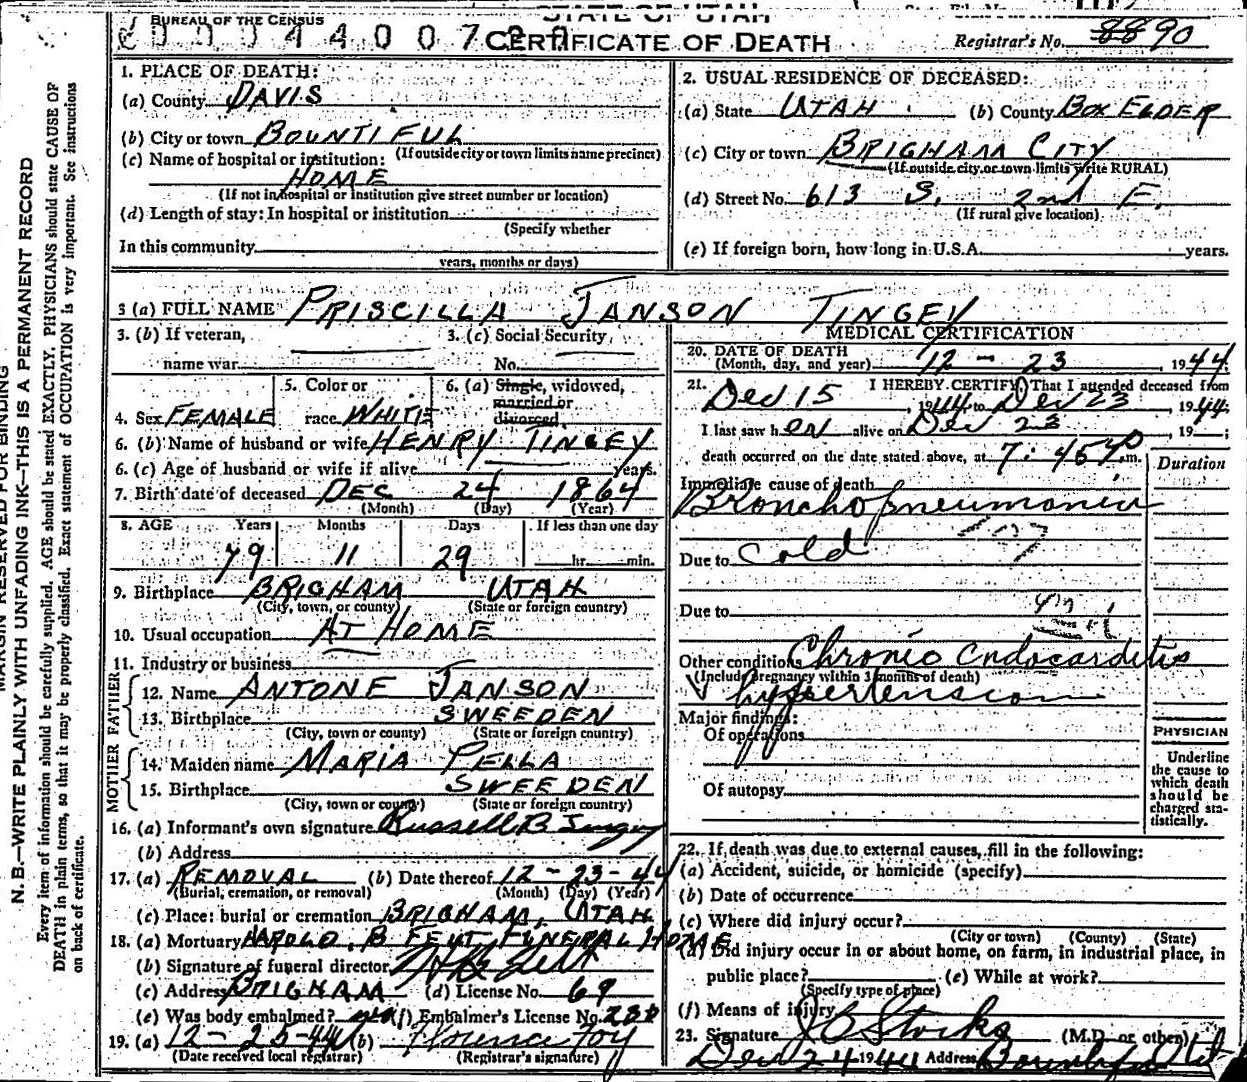 BUREAU OF THE CENSUS
STATE OF UTAH
CERTIFICATE OF DEATH
Registrar's No. 90
MARGIN RESERVED FOR BINDING
N. B.—WRITE PLAINLY WITH UNFADING INK—THIS IS A PERMANENT RECORD
Every item of information should be carefully supplied. AGE should be stated EXACTLY. PHYSICIANS should state CAUSE OF
DEATH in plain terms, so that it may be properly classified. Exact statement of OCCUPATION is very important. See instructions
on back of certificate.
1. PLACE OF DEATH:
(a) County DAVIS
(b) City or town BOUNTIFUL
(If outside city or town limits name precinct)
(c) Name of hospital or institution:
HOME
(If not in hospital or institution give street number or location)
(d) Length of stay: In hospital or institution
(Specify whether
In this community
years, months or days)
2. USUAL RESIDENCE OF DECEASED:
(a) State UTAH (b) County BOX ELDER
(c) City or town BRIGHAM CITY
(If outside city or town limits write RURAL)
(d) Street No. 613 S. 2nd E.
(If rural give location)
(e) If foreign born, how long in U.S.A. years.
3 (a) FULL NAME PRISCILLA JANSON TINGEY
3. (b) If veteran, 3. (c) Social Security
name war No.
4. Sex FEMALE 5. Color or race WHITE 6. (a) Single, widowed, married or divorced
6. (b) Name of husband or wife HENRY TINGEY
6. (c) Age of husband or wife if alive years.
7. Birth date of deceased DEC 24 1864
(Month) (Day) (Year)
8. AGE Years Months Days If less than one day
79 11 29 hr. min.
9. Birthplace BRIGHAM UTAH
(City, town, or county) (State or foreign country)
10. Usual occupation AT HOME
11. Industry or business
FATHER
12. Name ANTONE JANSON
13. Birthplace SWEEDEN
(City, town or county) (State or foreign country)
MOTHER
14. Maiden name MARIA PELLA
15. Birthplace SWEEDEN
(City, town or county) (State or foreign country)
16. (a) Informant's own signature Russell B Tingey
(b) Address
17. (a) REMOVAL (b) Date thereof 12-23-44
(Burial, cremation, or removal) (Month) (Day) (Year)
(c) Place: burial or cremation BRIGHAM, UTAH
18. (a) Mortuary HAROLD B FELT FUNERAL HOME
(b) Signature of funeral director
(c) Address BRIGHAM (d) License No. 69
(e) Was body embalmed? (f) Embalmer's License No.
19. (a) 12-25-44 (b) Florence Foy
(Date received local registrar) (Registrar's signature)
MEDICAL CERTIFICATION
20. DATE OF DEATH
(Month, day, and year) 12-23, 1944
21. I HEREBY CERTIFY, That I attended deceased from
Dec 15, 1944 to Dec 23, 1944;
I last saw her alive on Dec 23, 19 ;
death occurred on the date stated above, at 7:45 p.m.
Duration
Immediate cause of death
Bronchopneumonia
Due to Cold
Due to
Other conditions Chronic Endocarditis
(Include pregnancy within 3 months of death)
hypertension
Major findings:
Of operations
Of autopsy
PHYSICIAN
Underline
the cause to
which death
should be
charged sta-
tistically.
22. If death was due to external causes, fill in the following:
(a) Accident, suicide, or homicide (specify)
(b) Date of occurrence
(c) Where did injury occur?
(City or town) (County) (State)
(d) Did injury occur in or about home, on farm, in industrial place, in
public place? (e) While at work?
(Specify type of place)
(f) Means of injury
23. Signature J C Stocks (M.D. or other)
Dec 24 1944 Address Bountiful Utah